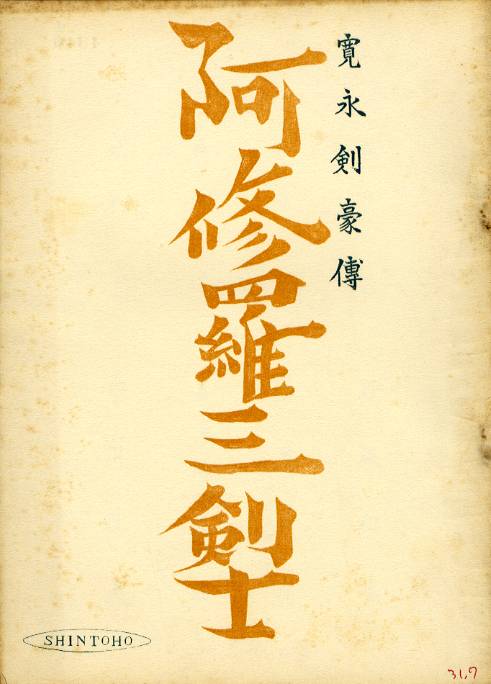 寛永剣豪傳
阿修羅三剣士
SHINTOHO
31.7